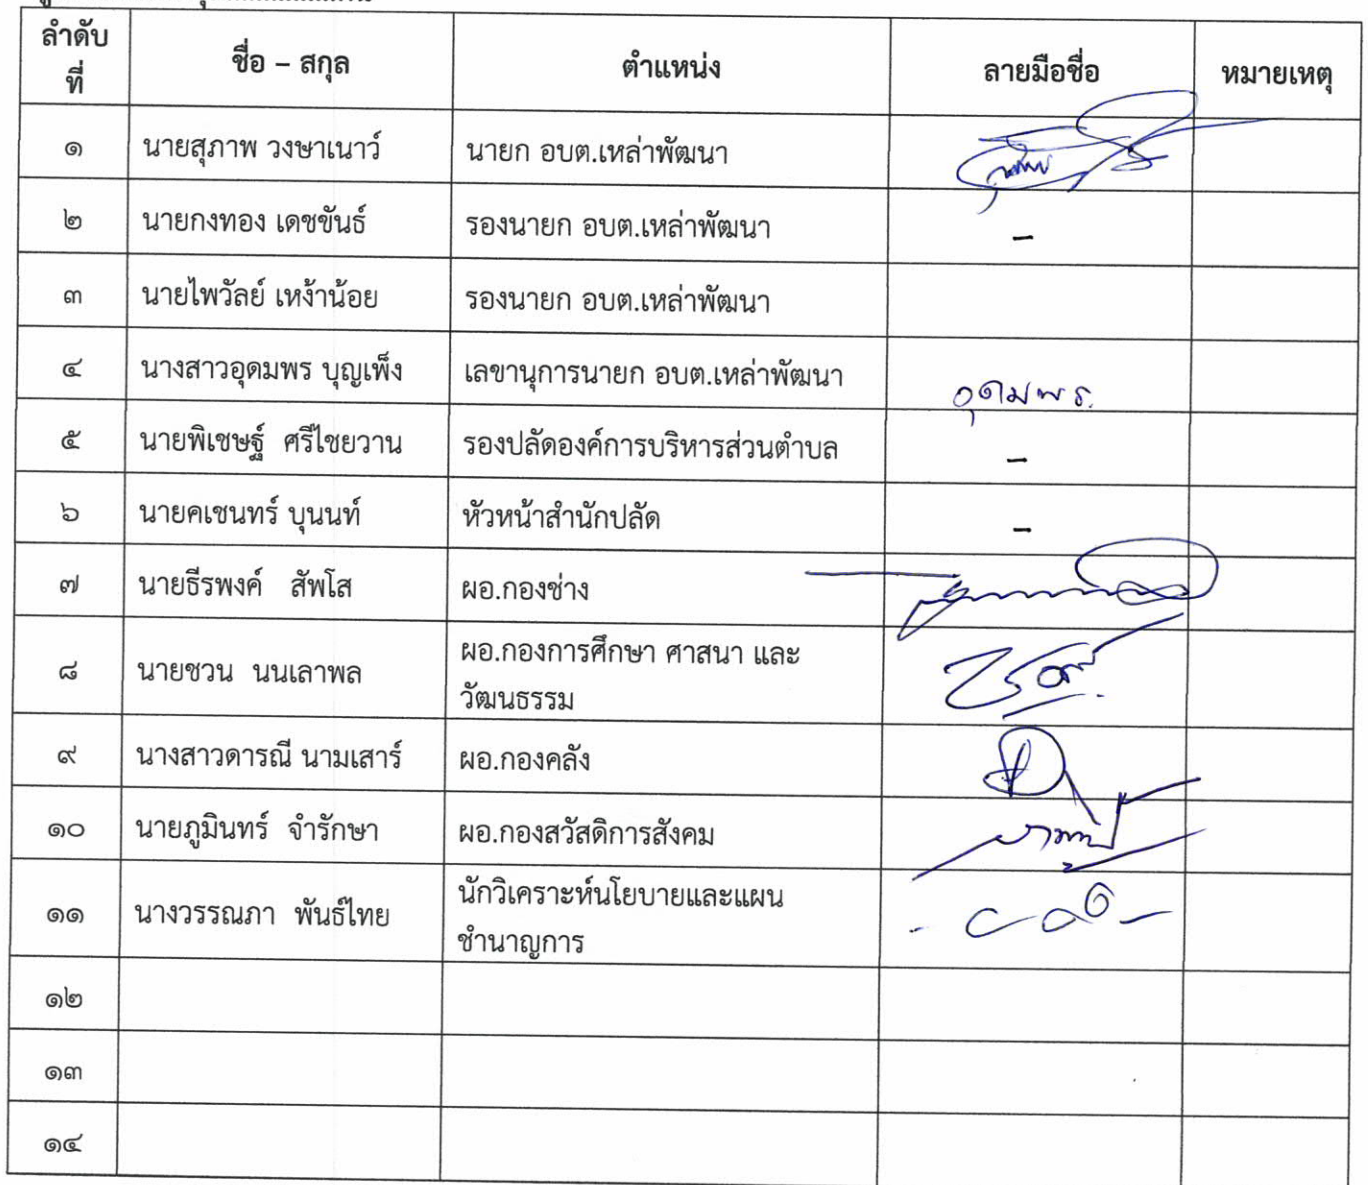 ลำดับ
ที่
ชื่อ – สกุล
ตำแหน่ง
ลายมือชื่อ
หมายเหตุ
๑ นายสุภาพ วงษาเนาว์ นายก อบต.เหล่าพัฒนา
๒ นายกงทอง เดชขันธ์ รองนายก อบต.เหล่าพัฒนา –
๓ นายไพวัลย์ เหง้าน้อย รองนายก อบต.เหล่าพัฒนา
๔ นางสาวอุดมพร บุญเพ็ง เลขานุการนายก อบต.เหล่าพัฒนา อุดมพร.
๕ นายพิเชษฐ์ ศรีไชยวาน รองปลัดองค์การบริหารส่วนตำบล –
๖ นายคเชนทร์ บุนนท์ หัวหน้าสำนักปลัด –
๗ นายธีรพงค์ สัพโส ผอ.กองช่าง
๘ นายชวน นนเลาพล ผอ.กองการศึกษา ศาสนา และ
วัฒนธรรม
๙ นางสาวดารณี นามเสาร์ ผอ.กองคลัง
๑๐ นายภูมินทร์ จำรักษา ผอ.กองสวัสดิการสังคม
๑๑ นางวรรณภา พันธ์ไทย นักวิเคราะห์นโยบายและแผน
ชำนาญการ
๑๒
๑๓
๑๔